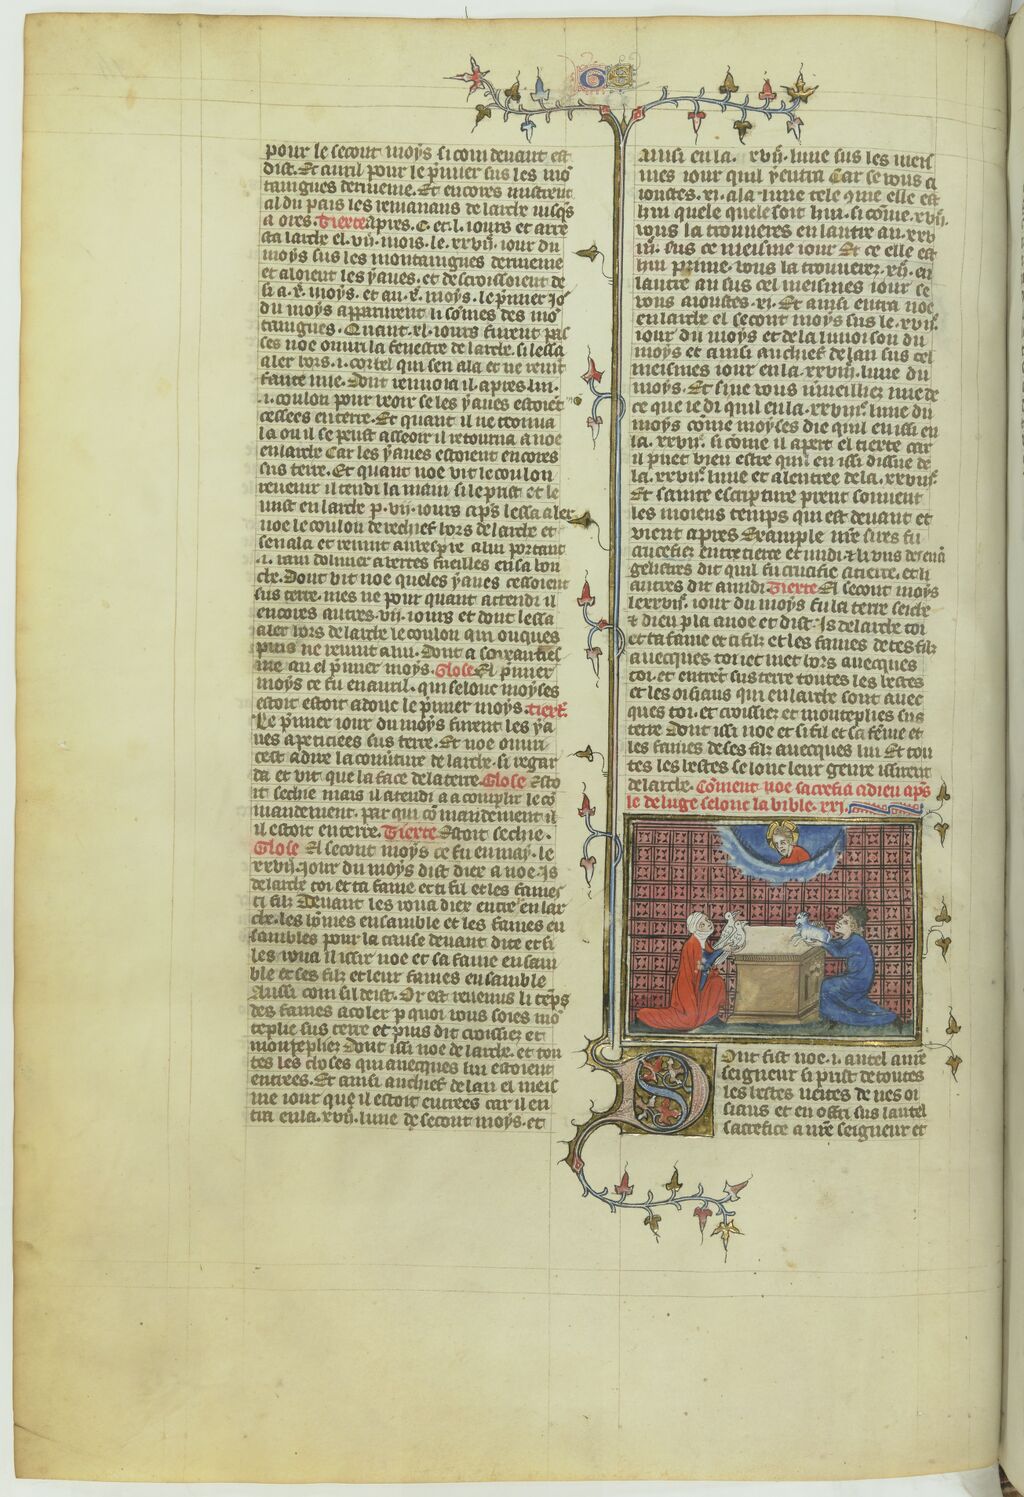 GE
pour le secont moys si com devant est
dist. Et avril pour le p̄mier sus les mō
taingnes dermenie. Et encores mustrent
al du pais les remanans de larche iusqs
a ores. Tierte apres .C. et .l. iours et arre
sta larche el .vij. mois. le .xxvij. iour du
moys sus les montaingnes dermenie
et aloient les yaues. et descroissoient de
si a .x. moys. et au .x. moys. le p̄mier io
du moys apparurent li somes des mō
taingnes. Quant .xl. iours furent pas
ses noe ouuri la fenestre de larche. si lessa
aler hors .i. corbel qui sen ala et ne revīt
Dont renvoia il apres lui
.i. coulon pour veoir se les yaues estoiēt
cessees en terre. Et quant il ne trouva
la ou il se peust asseoir il retourna a noe
en larche Car les yaues estoient encores
sus terre. Et quant noe vit le coulon
revenir il tendi la main si le prist et le
mist en larche p̄ .vij. iours ap̄s lessa aler
noe le coulon de rechief hors de larche et
sen ala et revint au vespre a lui portant
.i. raim dolivier a vertes fueilles en sa bou
che. Dont vit noe que les yaues cessoient
sus terre. mes ne pour quant attendi il
encores autres .vij. iours et dont lessa
aler hors de larche le coulon qui onques
puis ne revint a lui. Dont a
me an el p̄mier moys. Glose El p̄mier
moys ce fu en auril. qui selonc moyses
estoit estoit adonc le p̄mier moys. tiert.
Le p̄mier iour du moys furent les ya
ues apeticiees sus terre. Et noe ouuri
cest a dire la couuture de larche. si regar
da et vit que la face de la terre. Glose Esto
it seche mais il atendi a acomplir le cō
mandement. par qui cōmandement il
il estoit en terre. Tierte Estoit seche.
Glose El secont moys ce fu en may. le
xxvij. iour du moys dist diex a noe. Is
de larche toi et ta fame et ti fil et les fames
ti filz. Devant les roua diex entre en lar
che. les hōmes ensamble et les fames en
sambles pour la cause devant dite et si
les roua il issir noe et sa fame ensam
ble et ses filz et leur fames ensamble
Aussi com sil deist. Or est revenus li tēps
des fames acoler p̄ quoi vous soies mō
teplie sus terre et puis dit croissiez et
montepliez Dont issi noe de larche. et tou
tes les choses qui avecques lui estoient
entrees. Et ainsi au chief de lan el meis
me iour que il estoit entrees car il en
tra en la .xvij. lune de secont moys. et
ainsi en la .xvij. lune sus les meis
mes iour quil y entra Car se vous a
ioustes .xi. a la lune tele que elle est
hui quele quele soit hui. si cōme .xvij.
vous la trouverez en lautre an .xxv
iij. sus ce meisme iour Et ce elle est
hui prime. vous la trouverez .xij. en
lautre an sus cel meismes iour se
vous aioustes .xi. Et ainsi entra noe
en larche el secont moys sus le .xvij.
iour du moys et de la lunoison du
moys et ainsi au chief de lan sus cel
meismes iour en la .xxviij. lune du
moys. Et si ne vous mueilliez mie de
ce que ie di quil en la .xxviij. lune du
moys cōme moyses die quil en issi en
la .xxvij. si cōme il apert el tierte car
il puet bien estre quil en issi dissue de
la .xxvij. lune et a lentree de la .xxviij.
Et sainte escripture prent souvent
les moiens temps qui est devant et
vient apres Example nr̄e sires fu
crucefiez entre tierte et midi. et li uns des euū
gelistres dit quil fu crucifie a tierte. et li
autres dit a midi. Tierte El secont moys
le xxvij. iour du moys fu la terre seiche
et dieu p̄la a noe et dist. Is de larche toi
et ta fame et ti filz et les fames de tes filz
avecques toi et met hors avecques
toi. et entrēt sus terre toutes les bestes
et les oisiaus qui en larche sont avec
ques toi. et croissiez et monteplies sus
terre Dont issi noe et si fil et sa fēme et
les fames de ses filz avecques lui Et tou
tes les bestes selonc leur genre issirent
de larche. Cōment noe sacrefia a dieu ap̄s
le deluge selonc la bible. xxi.
Dont fist noe .i. autel a nr̄e
seigneur si prist de toutes
les bestes netes de nes oi
siaus et en offri sus lautel
sacrefice a nr̄e seigneur et